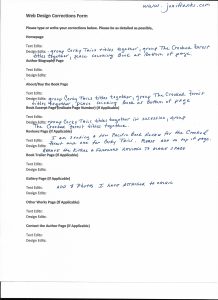 www.janifranks.com
Web Design Corrections Form
Please type or write your corrections below. Please be as detailed as possible.
Homepage
Text Edits:
Design Edits: group Corky Tails titles together, group The Crooked Forest
titles together, place coming back at bottom of page.
Author Biography Page
Text Edits:
Design Edits:
About/Buy the Book Page
Text Edits:
Design Edits: group Corky Tails titles together, group The Crooked Forest
titles together, place coming back at bottom of page
Book Excerpt Page (Indicate Page Number) (If Applicable)
Text Edits:
Design Edits: group Corky Tails titles together in succession, group
The Crooked Forest titles together.
Reviews Page (If Applicable)
Text Edits: I am sending a new Pacific Book Review for The Crooked
Design Edits: Forest and one for Corky Tails. Please add on top of page,
remove the Kirkus & Foreword reviews to make space
Book Trailer Page (If Applicable)
Text Edits:
Design Edits:
Gallery Page (If Applicable)
Text Edits:
Design Edits: add 8 photos I have attached to email
Other Works Page (If Applicable)
Text Edits:
Design Edits:
Contact the Author Page (If Applicable)
Text Edits:
Design Edits: